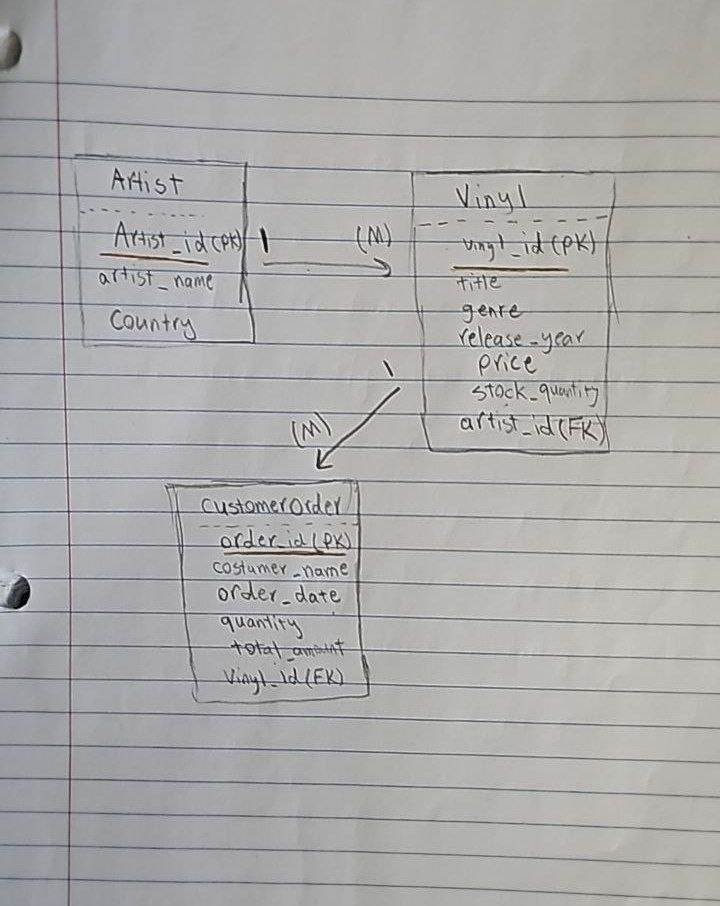 Artist
Artist_id(PK)
artist_name
Country
1 (M)
Vinyl
vinyl_id(PK)
title
genre
release_year
price
stock_quantity
artist_id(FK)
1
(M)
customerorder
order_id(PK)
costumer_name
order_date
quantity
total_amount
Vinyl_id(FK)